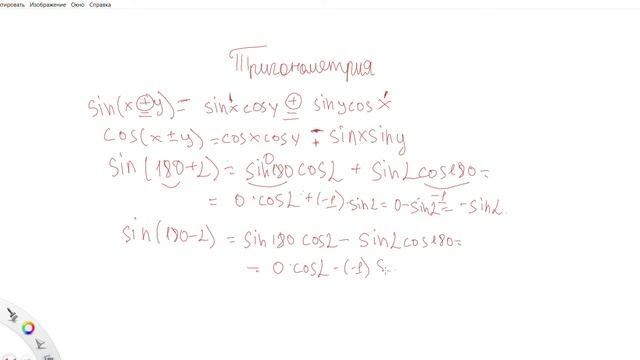 Изображение Окно Справка
Тригонометрия
sin(x±y)= sinxcosy ± sinycosx
cos(x±y)=cosxcosy ∓ sinxsiny
sin(180+L)= sin180cosL + sinLcos180=
= 0·cosL+(-1)·sinL=0-sinL=-sinL.
sin(180-L) = sin180cosL-sinLcos180=
= 0·cosL-(-1)s